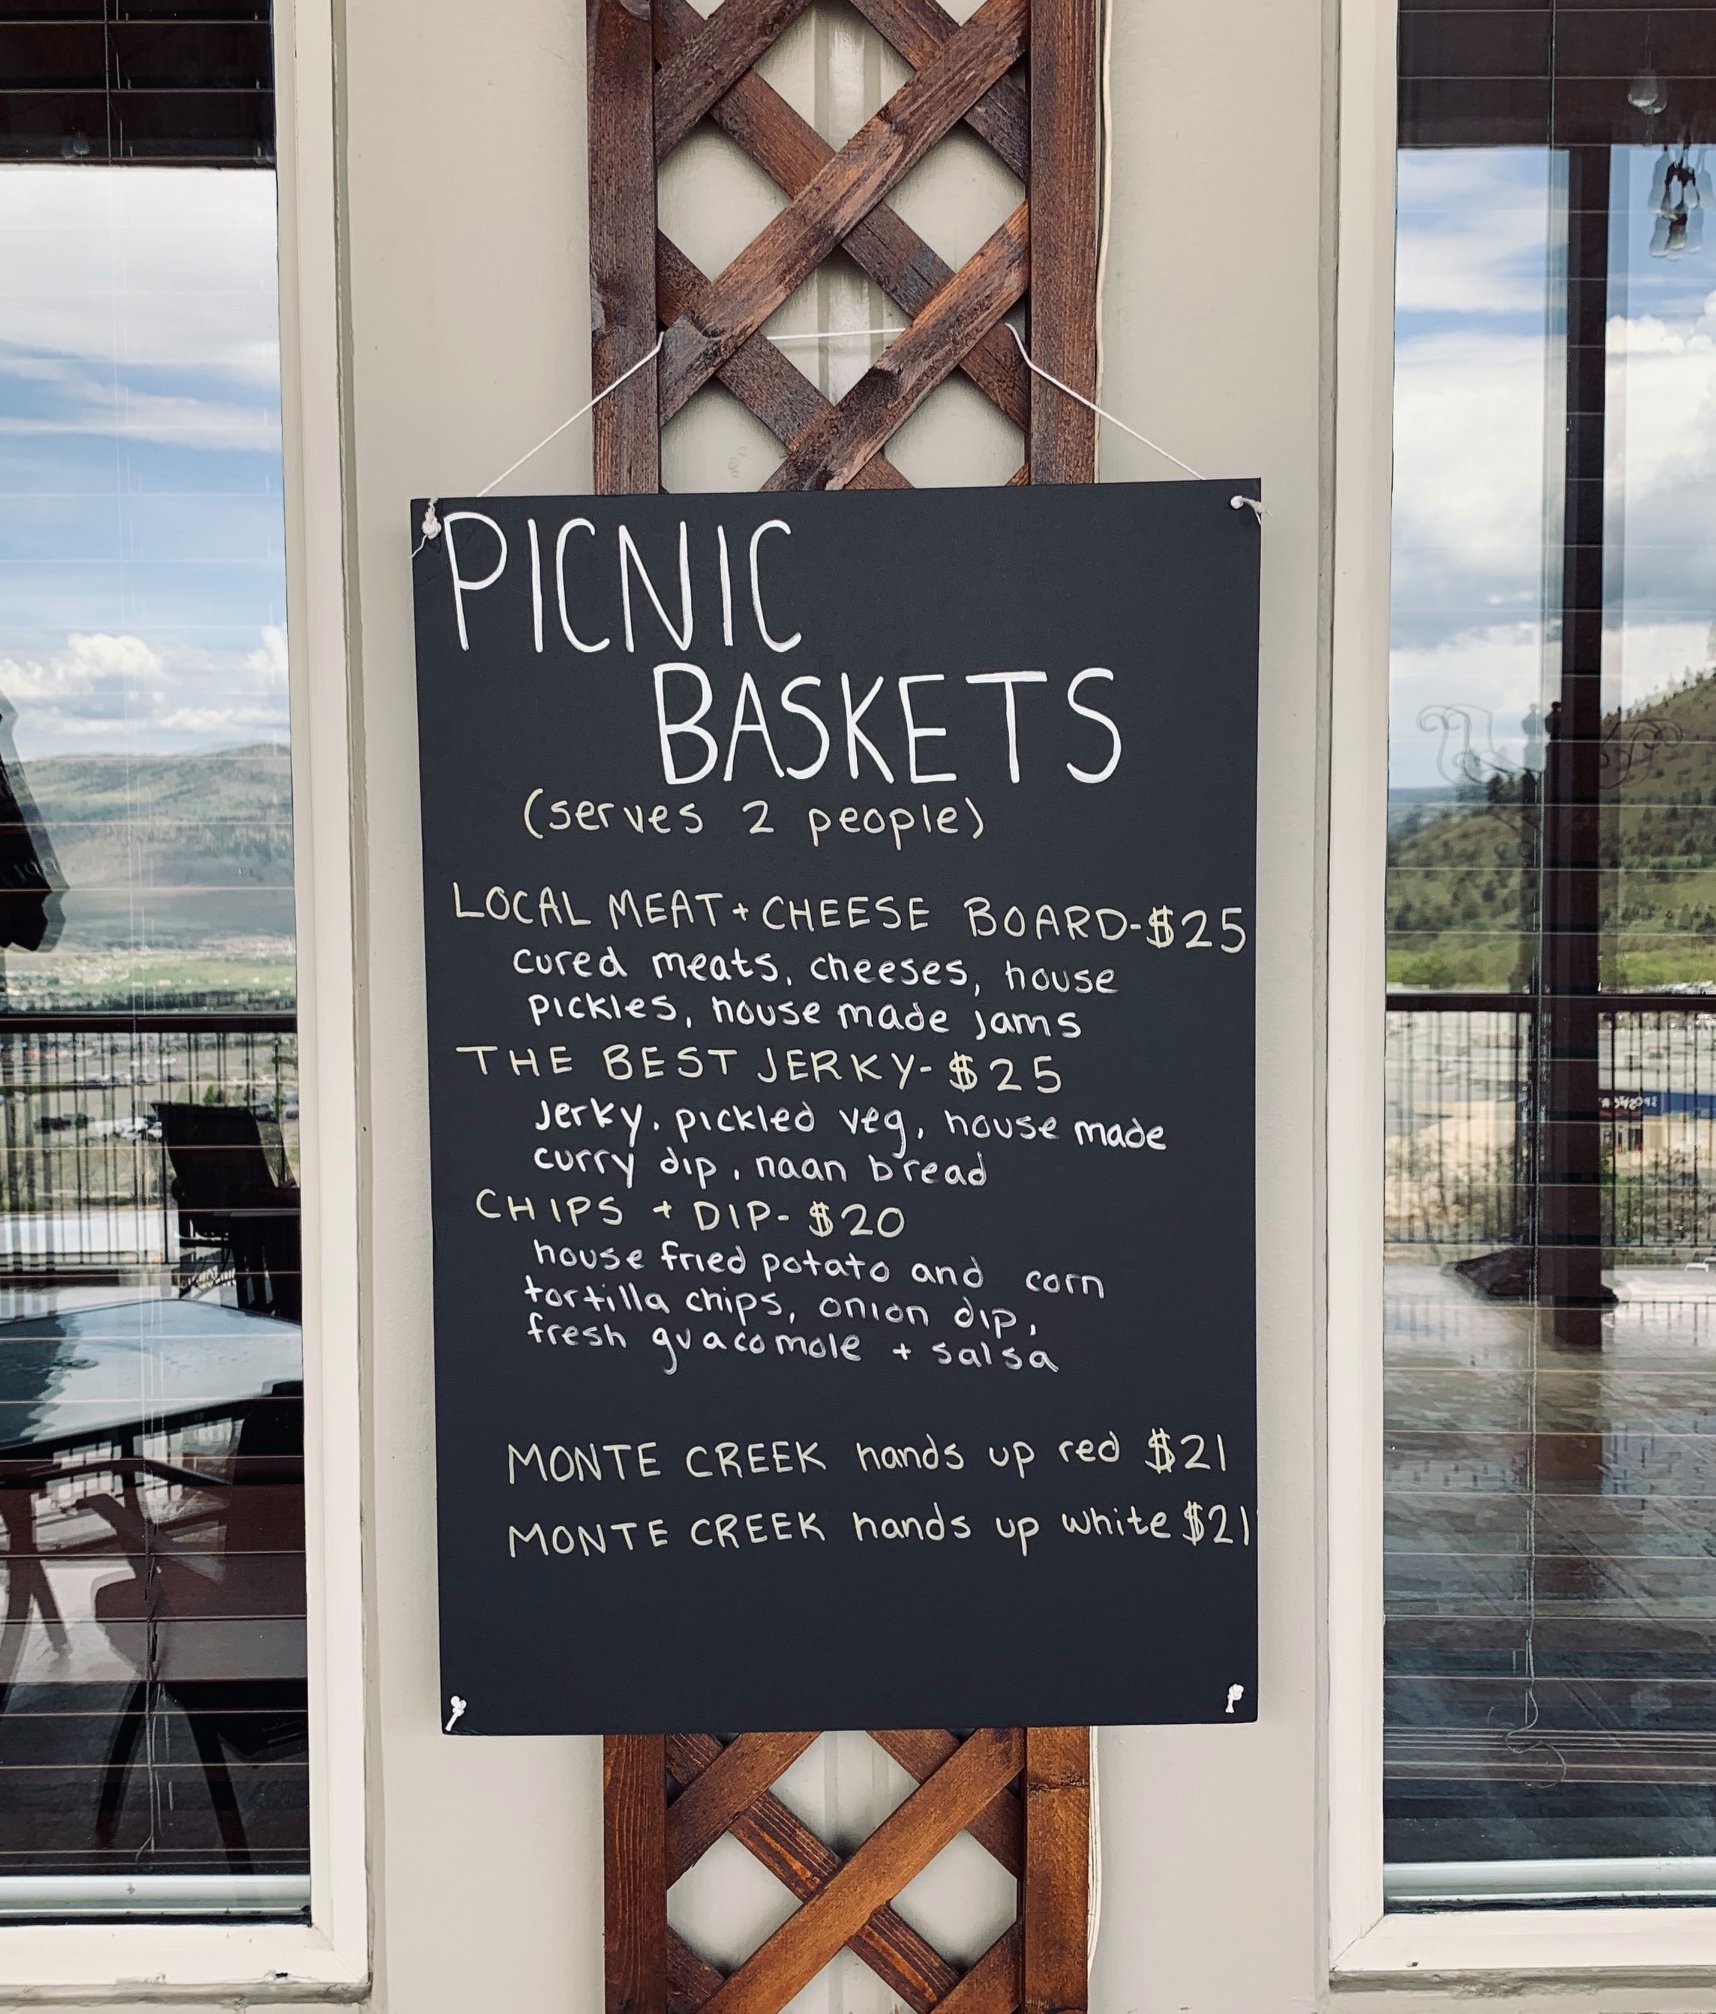 PICNIC
BASKETS
(serves 2 people)
LOCAL MEAT + CHEESE BOARD-$25
cured meats, cheeses, house
pickles, house made jams
THE BEST JERKY-$25
Jerky, pickled veg, house made
curry dip, naan bread
CHIPS + DIP-$20
house fried potato and corn
tortilla chips, onion dip,
fresh guacomole + salsa
MONTE CREEK hands up red $21
MONTE CREEK hands up white $21